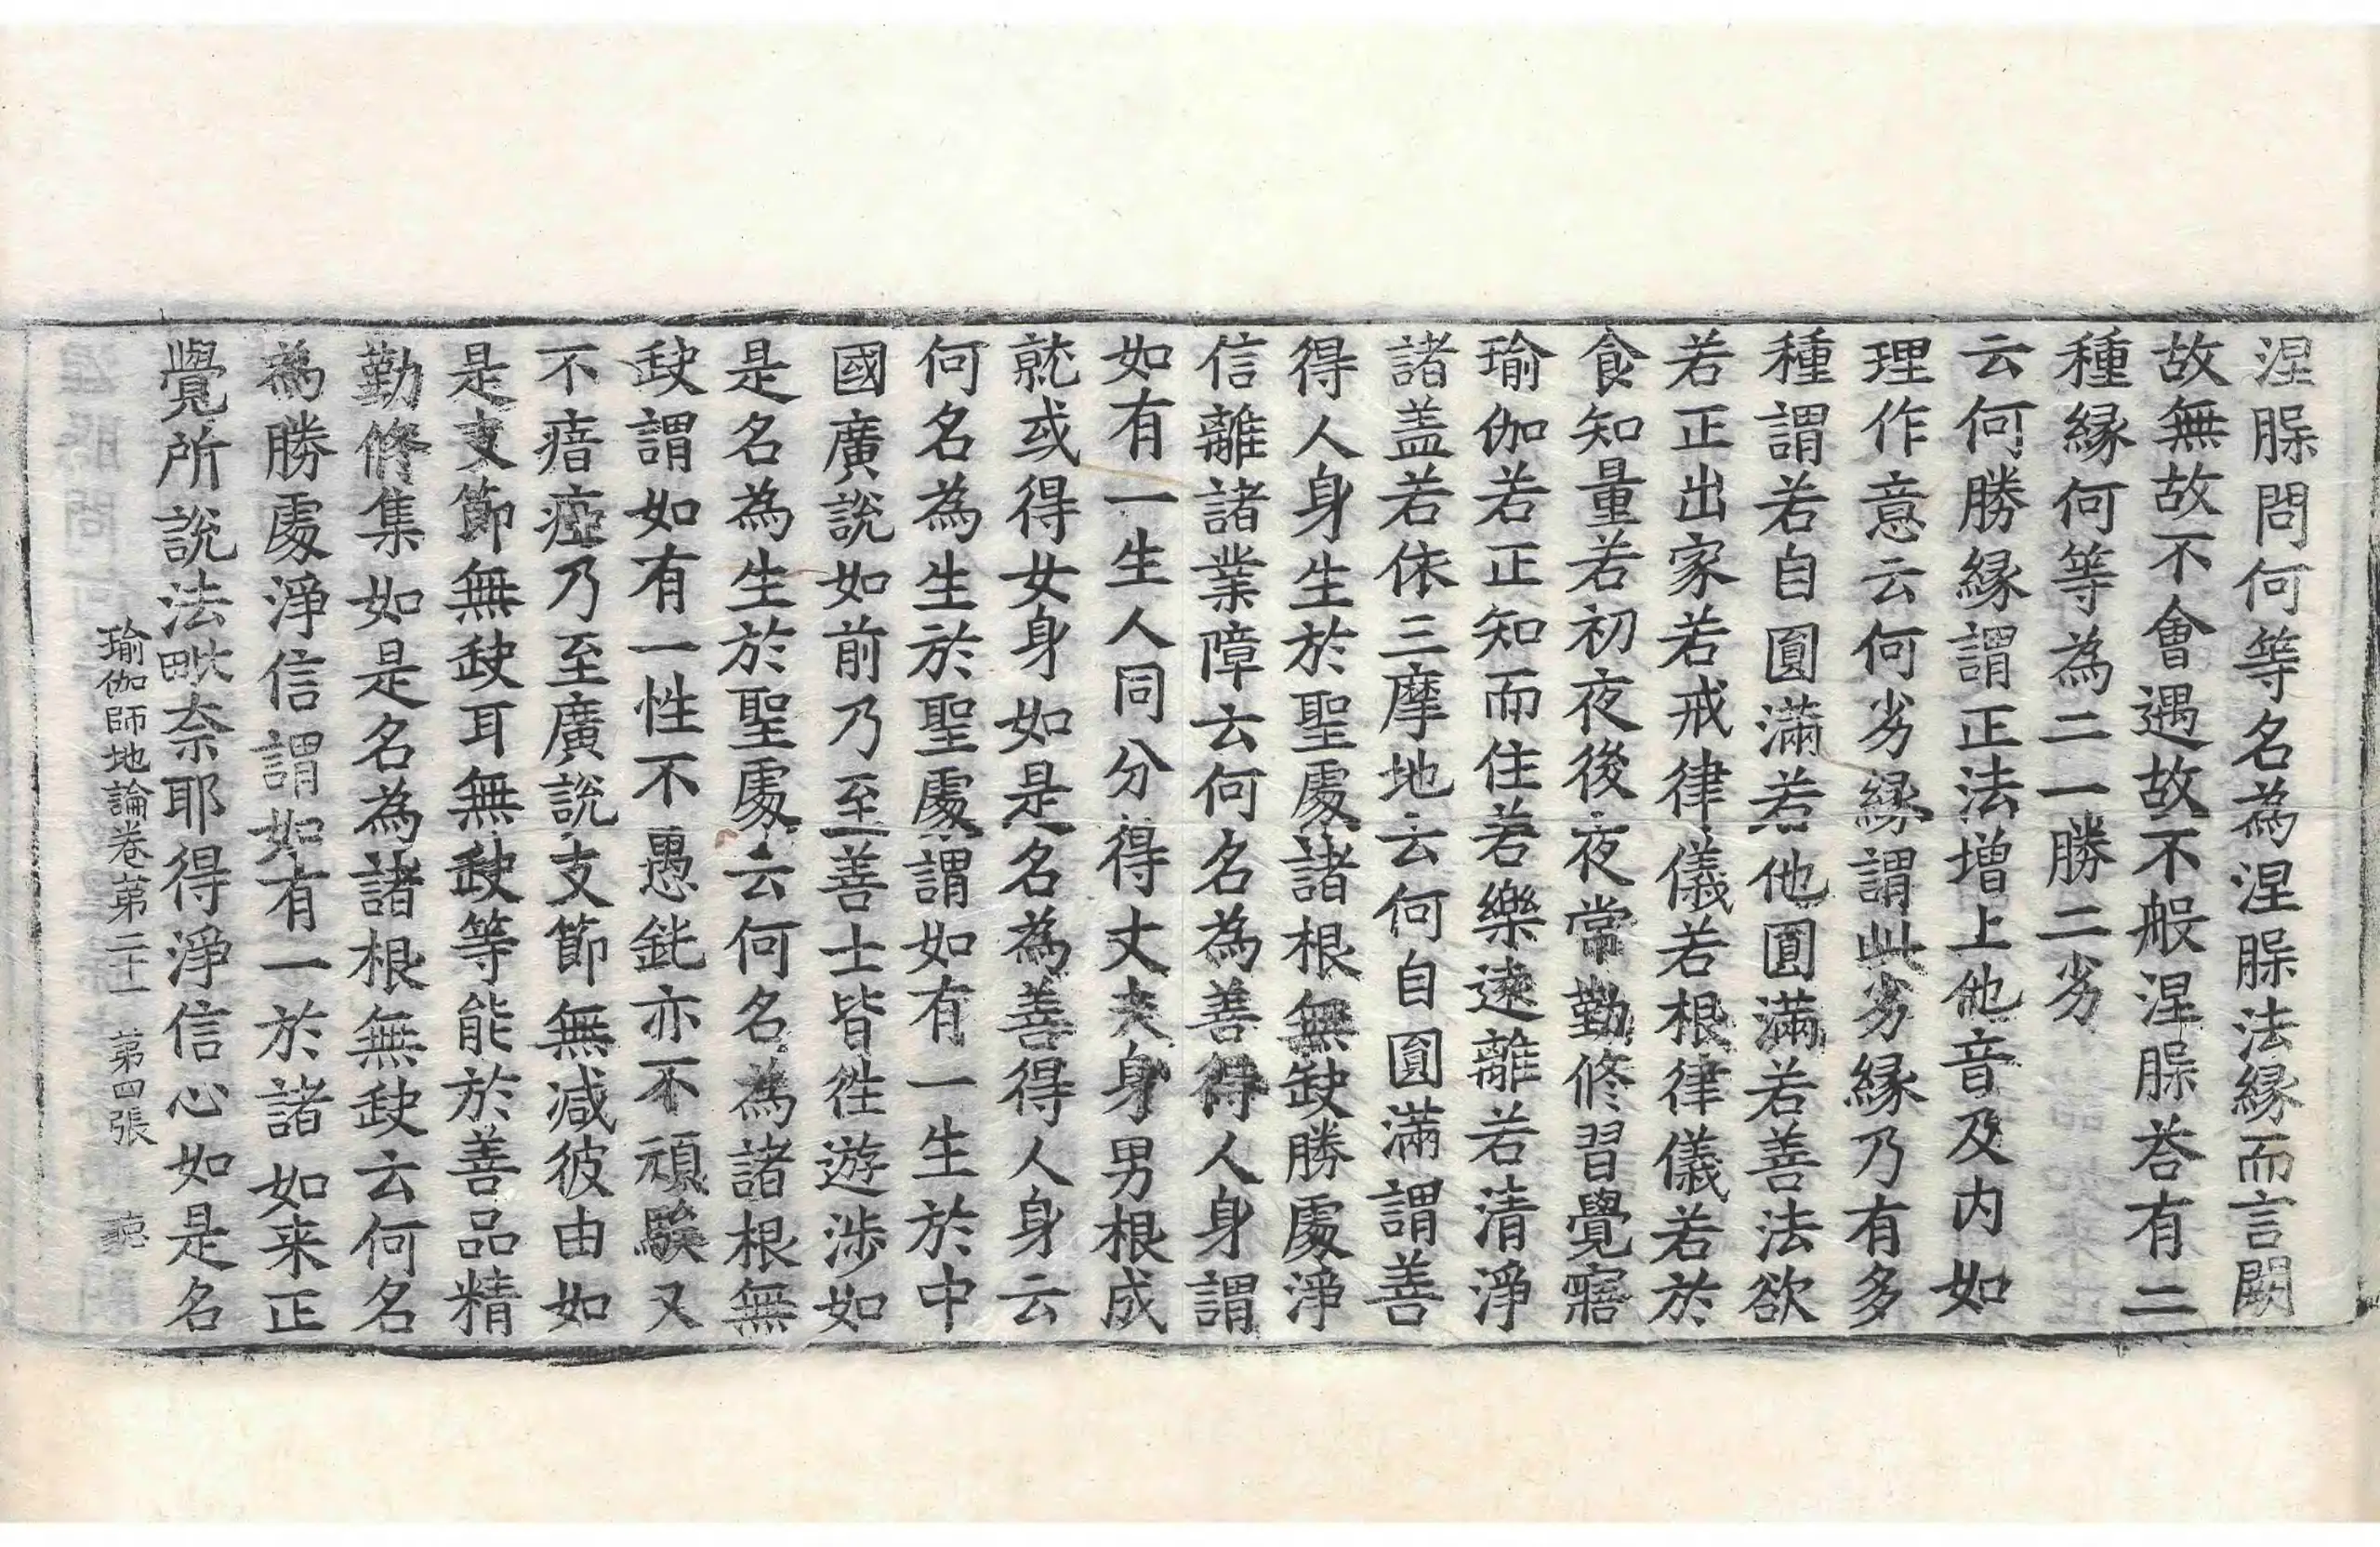 涅槃問何等名為涅槃法緣而言闕
故無故不會遇故不般涅槃荅有二
種縁何等為二一勝二劣
云何勝縁謂正法增上他音及内如
理作意云何劣縁謂此劣縁乃有多
種謂若自圓滿若他圓滿若善法欲
若正出家若戒律儀若根律儀若於
食知量若初夜後夜常勤修習覺寤
瑜伽若正知而住若樂遠離若清淨
諸盖若依三摩地云何自圓滿謂善
得人身生於聖處諸根無缺勝處淨
信離諸業障云何名為善得人身謂
如有一生人同分得丈夫身男根成
就或得女身如是名為善得人身云
何名為生於聖處謂如有一生於中
國廣說如前乃至善士皆往遊涉如
是名為生於聖處云何名為諸根無
缺謂如有一性不愚鈍亦不頑騃又
不瘖瘂乃至廣說支節無減彼由如
是支節無缺耳無缺等能於善品精
勤修集如是名為諸根無缺云何名
為勝處淨信謂如有一於諸如来正
覺所說法毗奈耶得淨信心如是名
瑜伽師地論卷苐二十一 苐四張